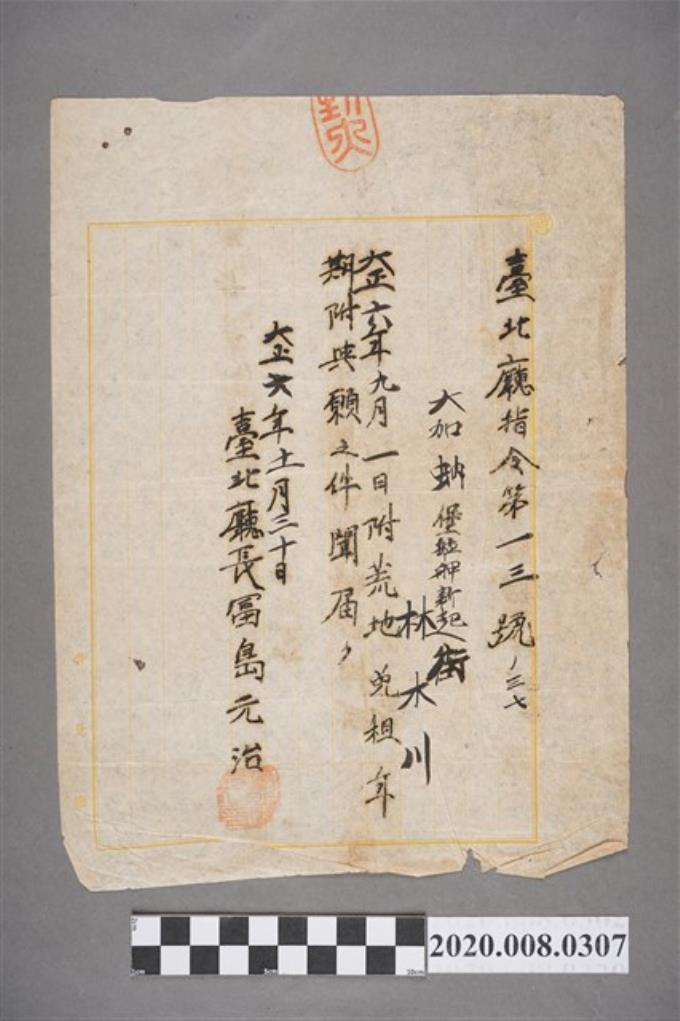 臺北廳指令第一三號ノ三七
大加蚋堡艋舺新起街
林木川
大正六年九月一日附荒地免租年
期附與願之件聞届ク
大正六年十一月三十日
臺北廳長冨島元治
2020.008.0307
0cm 5cm 10cm